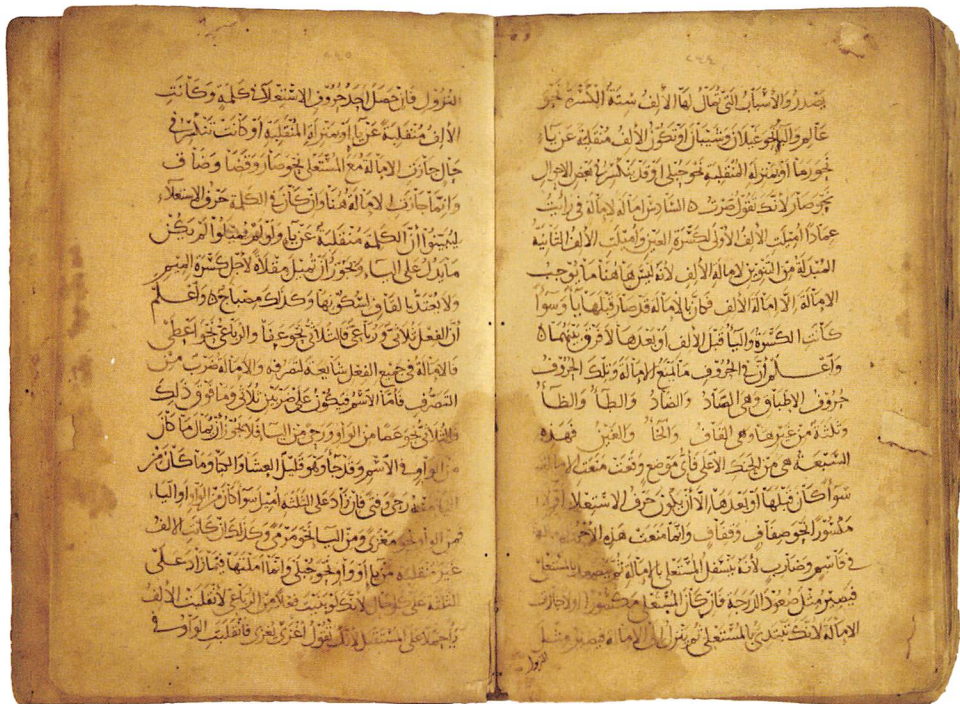 يصدر والأسباب التي تمال لها الألف ستة الكسرة نحو
عالم واليا نحو غيلان وشيبان أو تكون الألف منقلبة عن ياء
نحو رما أو بمنزلة المنقلبة نحو حبلى أو قد ينكسر في بعض الاحوال
نحو صار لأنك تقول صرت ه السادس امالة لإمالة في رايت
عمادا أميلت الألف الأولى لكسرة العين وأميلت الألف الثانية
المبدلة من التنوين لإمالة الألف لأنه ليس هاهنا ما يوجب
الإمالة إلا إمالة الألف
كانت الكسرة واليا قبل الألف أو بعدها لا فرق بينهما ه
واعلم أن في الحروف ما يمنع الإمالة وتلك الحروف
حروف الإطباق وهي الصاد والضاد والطا والظا
وثلثة من غيرها وهي القاف والخا والغين فهذه
السبعة هي من الحنك الأعلى فأي موضع وقعت منعت الإمالة
سوا كان قبلها أو بعدها إلا أن يكون حرف الاستعلا أولا
مكسورا نحو صفاف وقفاف وانما منعت هذه الأحرف
في قاسم وضارب لأنه يتسفل المستعلي بالإمالة ثم يتصعد بالمستعلي
فيصير مثل صعود الدرجة فإن كان المستعلي مكسورا أولا جازت
الإمالة لأنك تبتدئ بالمستعلي ثم ينزل إلى الامالة فيصير مثل
النزول
النزول فإن حصل احد حروف الاستعلا في كلمة وكانت
الألف منقلبة عن ياء أو بمنزلة المنقلبة أو كانت تنكسر في
حال جازت الامالة مع المستعلي نحو صار وقضا وضاف
وانما جازت الإمالة هنا وإن كان في الكلمة حرف الاستعلاء
ليبينوا أن الكلمة منقلبة عن ياء ولو لم يميلوا لم يكن
ما يدل على الياء ويجوز أن تميل مقلاة لأجل كسرة الميم
ولا يعتد بالقاف لسكونها وكذلك مصباح ه واعلم
أن الفعل ثلاثي ورباعي فالثلاثي نحو عفا والرباعي نحو اعطى
فالامالة في جميع الفعل شايعة لتصرفه والامالة ضرب من
التصرف فأما الاسم فيكون على ضربين ثلاثي وما فوق ذلك
فالثلاثي نحو عصا من الواو ورحى من اليا فلا يجوز أن يمال ما كان
من الواو في الاسم وقد جاء وهو قليل العشا والما وما كان من
اليا منه رحى وفتى فإن زاد على الثلثة أميل سوا كان من الواو أو الياء
فمن الواو نحو مغزى ومن اليا نحو مرمى وكذلك إن كانت الألف
غير منقلبة من يا أو واو نحو حبلى وانما املتها فيما زاد على
الثلثة على كل حال لأنك لو بنيت فعلا من الرباعي لانقلبت الألف
ياء حملا على المستقبل لأنك تقول أغزى يغزي فانقلبت الواو في